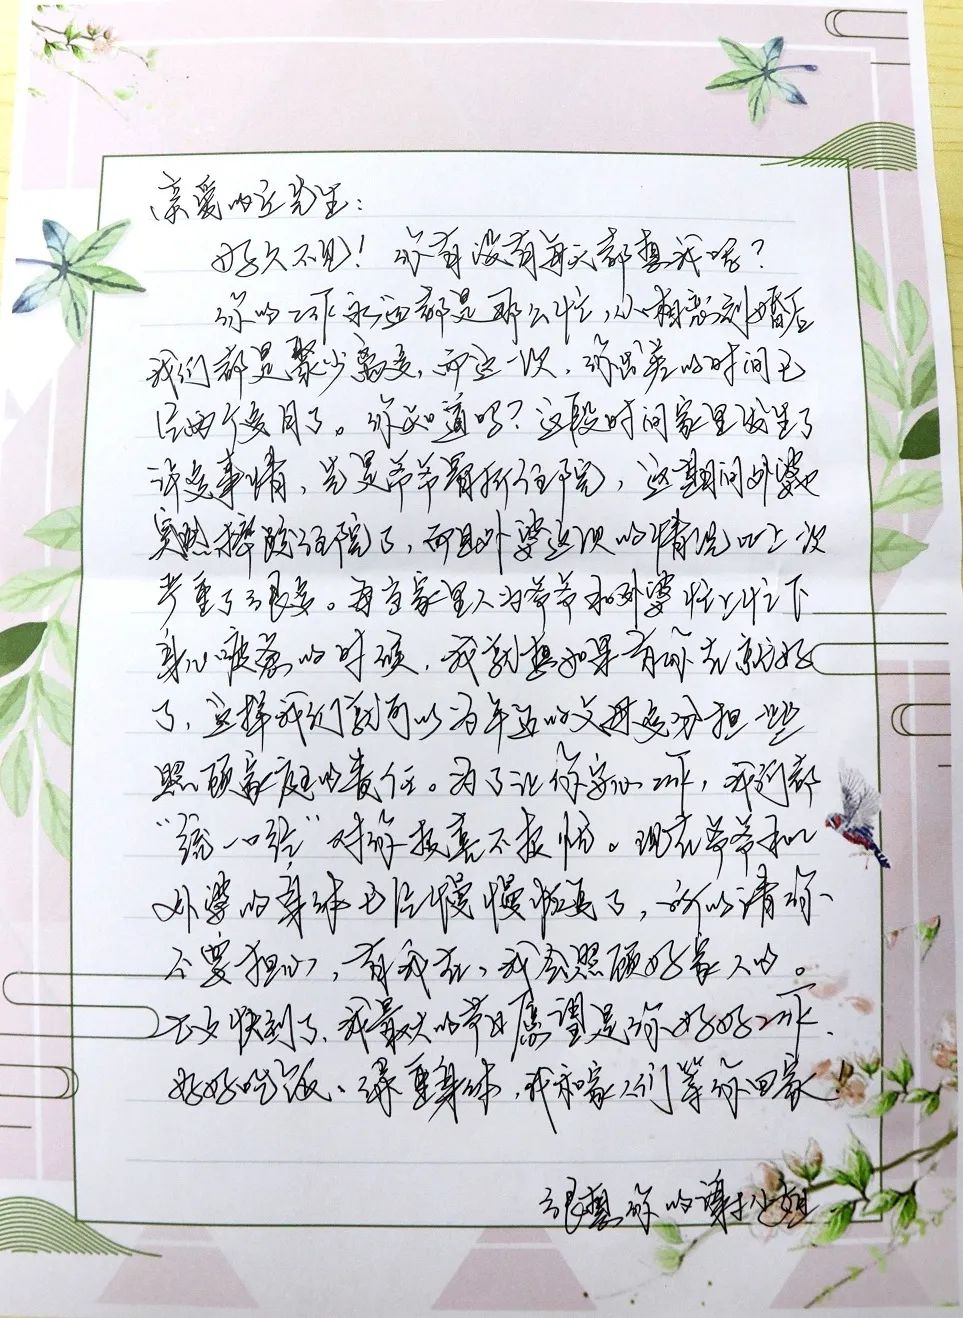 亲爱的丘先生：
好久不见！你有没有每天都想我呀？
你的工作永远都是那么忙，从相恋到婚后
我们都是聚少离多，而这一次，你出差的时间已
经两个多月了。你知道吗？这段时间家里发生了
许多事情，先是爷爷骨折住院，这期间外婆也
突然摔跤住院了，而且外婆这次的情况比上一次
严重了很多。每当家里人为爷爷和外婆忙上忙下
身心疲惫的时候，我就想如果有你在就好
了，这样我们就可以为年迈的父母多分担一些
照顾家庭的责任。为了让你安心工作，我们都
“统一口径”对你报喜不报忧。现在爷爷和
外婆的身体已经慢慢恢复了，所以请你
不要担心，有我在，我会照顾好家人的。
快到了，我最大的节日愿望是你好好工作、
好好吃饭、保重身体，我和家人们等你回家！
很想你的谢小姐